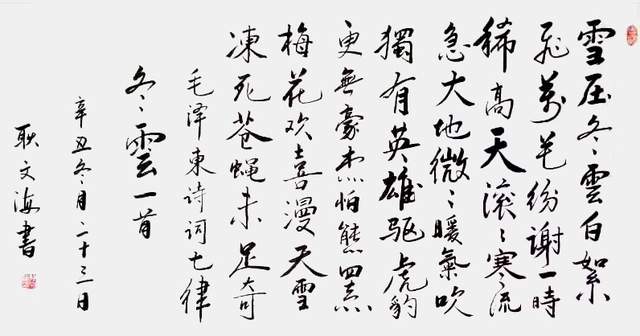 雪压冬雲白絮
飛萬花纷谢一時
稀高天滚〻寒流
急大地微〻暖氣吹
獨有英雄驱虎豹
更無豪杰怕熊罴
梅花欢喜漫天雪
凍死苍蝇未足奇
毛泽東诗词七律
冬雲一首
辛丑冬月二十三日
耿文海書